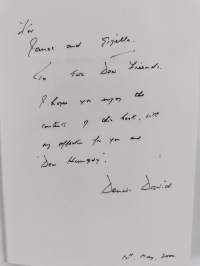 For
James and Gizella.
Our two Dear Friends.
I hope you enjoy the
contents of this book, with
my affection for you and
"Dear Hungary".
Dennis David
12th May, 2002